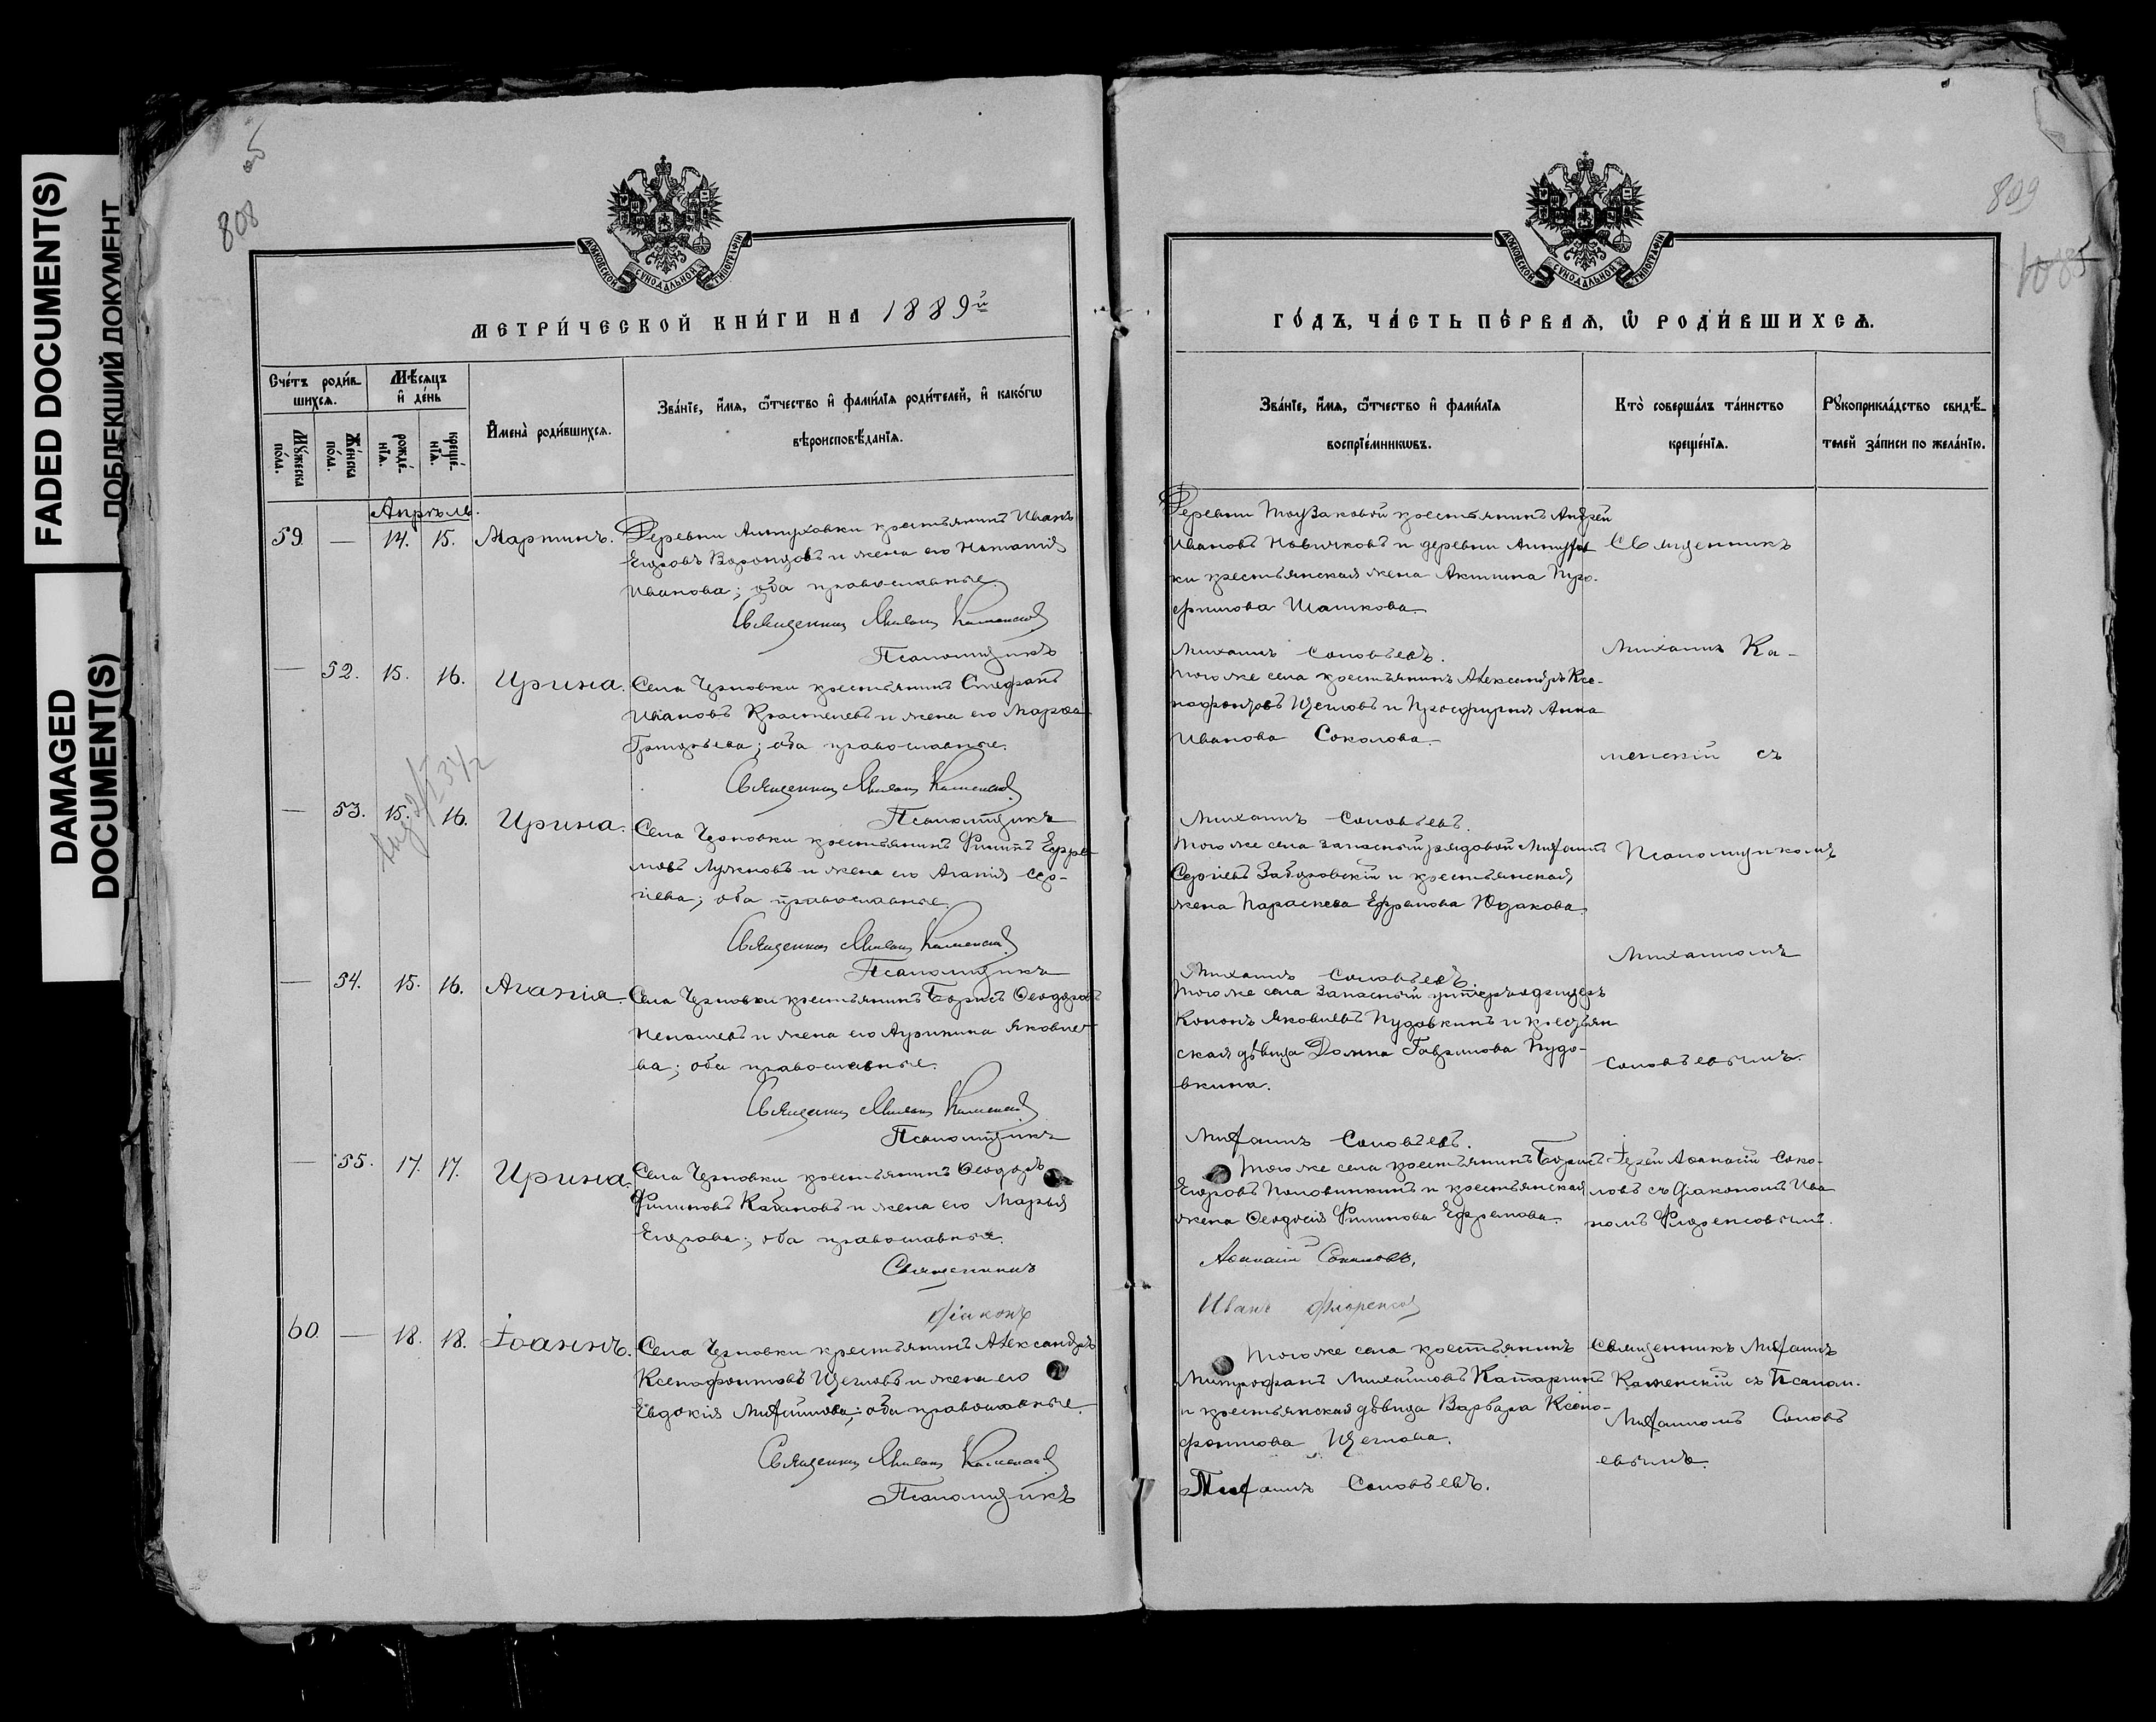 FADED DOCUMENT(S)
ПОБЛЕКШИЙ ДОКУМЕНТ
DAMAGED
DOCUMENT(S)
808 об
МОСКОВСКОЙ СѴНОДАЛЬНОЙ ТИПОГРАФІИ
МЕТРИ́ЧЕСКОЙ КНИ́ГИ НА 1889й
Сче́тъ роди́в-
шихсѧ.
Мѣ́сѧцъ
и҆ де́нь
Мꙋ́жеска
по́ла.
Же́нска
по́ла.
рожде́-
нїѧ.
креще́-
нїѧ.
И҆мена̀ роди́вшихсѧ.
Зва́нїе, и҆́мѧ, ѻ҆́тчество и҆ фами́лїѧ роди́телей, и҆ како́гѡ
вѣроисповѣ́данїѧ.
Апрѣль.
59. — 14. 15. Мартинъ. Деревни Липуховки крестьянинъ Иванъ
Егоровъ Воронцовъ и жена его Наталія
Иванова; оба православные.
Священникъ Михаилъ Каменскій
Псаломщикъ
— 52. 15. 16. Ирина. Села Черновки крестьянинъ Стефанъ
Ивановъ и жена его Марѳа
Григорьева; оба православные.
Священникъ Михаилъ Каменскій
Псаломщикъ
— 53. 15. 16. Ирина. Села Черновки крестьянинъ Филипъ Ефре-
мовъ и жена его Агапія Сер-
гіева; оба православные.
Священникъ Михаилъ Каменскій
Псаломщикъ
— 54. 15. 16. Агапія. Села Черновки крестьянинъ Борисъ Ѳеодоровъ
и жена его Агрипина Яковле-
ва; оба православные.
Священникъ Михаилъ Каменскій
Псаломщикъ
— 55. 17. 17. Ирина. Села Черновки крестьянинъ Ѳеодоръ
Филиповъ Кабановъ и жена его Марья
Егорова; оба православные.
Священникъ
Діаконъ
60. — 18. 18. Іоаннъ. Села Черновки крестьянинъ Александръ
Ксенофонтовъ Щегловъ и жена его
Евдокія Михайлова; оба православные.
Священникъ Михаилъ Каменскій
Псаломщикъ
809
МОСКОВСКОЙ СѴНОДАЛЬНОЙ ТИПОГРАФІИ
ГО́ДЪ, ЧА́СТЬ ПЕ́РВАѦ, Ѡ҆ РОДИ́ВШИХСѦ.
Зва́нїе, и҆́мѧ, ѻ҆́тчество и҆ фами́лїѧ
воспрїе́мникѡвъ.
Кто̀ соверша́лъ та́инство
креще́нїѧ.
Рꙋкоприкла́дство свидѣ́-
телей за́писи по жела́нїю.
Деревни крестьянинъ Андрей
Ивановъ Новичковъ и деревни Липухов
ки крестьянская жена Акилина Тро-
фимова Шашкова.
Священникъ
Михаилъ Соловьевъ.
Михаилъ Ка-
Того же села крестьянинъ Александръ Ксе-
нофонтовъ Щегловъ и Просфирня Анна
Иванова Соколова.
менскій съ
Михаилъ Соловьевъ.
Того же села запасный рядовой Михаилъ
Сергіевъ Заборовскій и крестьянская
жена Параскева Ефремова Юдакова.
Псаломщикомъ
Михаиломъ
Михаилъ Соловьевъ.
Того же села запасный унтеръ-офицеръ
Кононъ Яковлевъ Пудовкинъ и крестьян
ская дѣвица Домна Гаврилова Пудо-
вкина.
Соловьевымъ.
Михаилъ Соловьевъ.
Того же села крестьянинъ Борисъ
Егоровъ Половинкинъ и крестьянская
жена Ѳеодосія Филипова Ефремова.
Іерей Аѳанасій Соко-
ловъ съ діакономъ Ива
номъ Флоренсовымъ.
Аѳанасій Соколовъ.
Иванъ Флоренсовъ
Того же села крестьянинъ
Митрофанъ Михайловъ Катаринъ
и крестьянская дѣвица Варвара Ксено-
фонтова Щеглова.
Священникъ Михаилъ
Каменскій съ Псалом.
Михаиломъ Соловь
евымъ.
Михаилъ Соловьевъ.